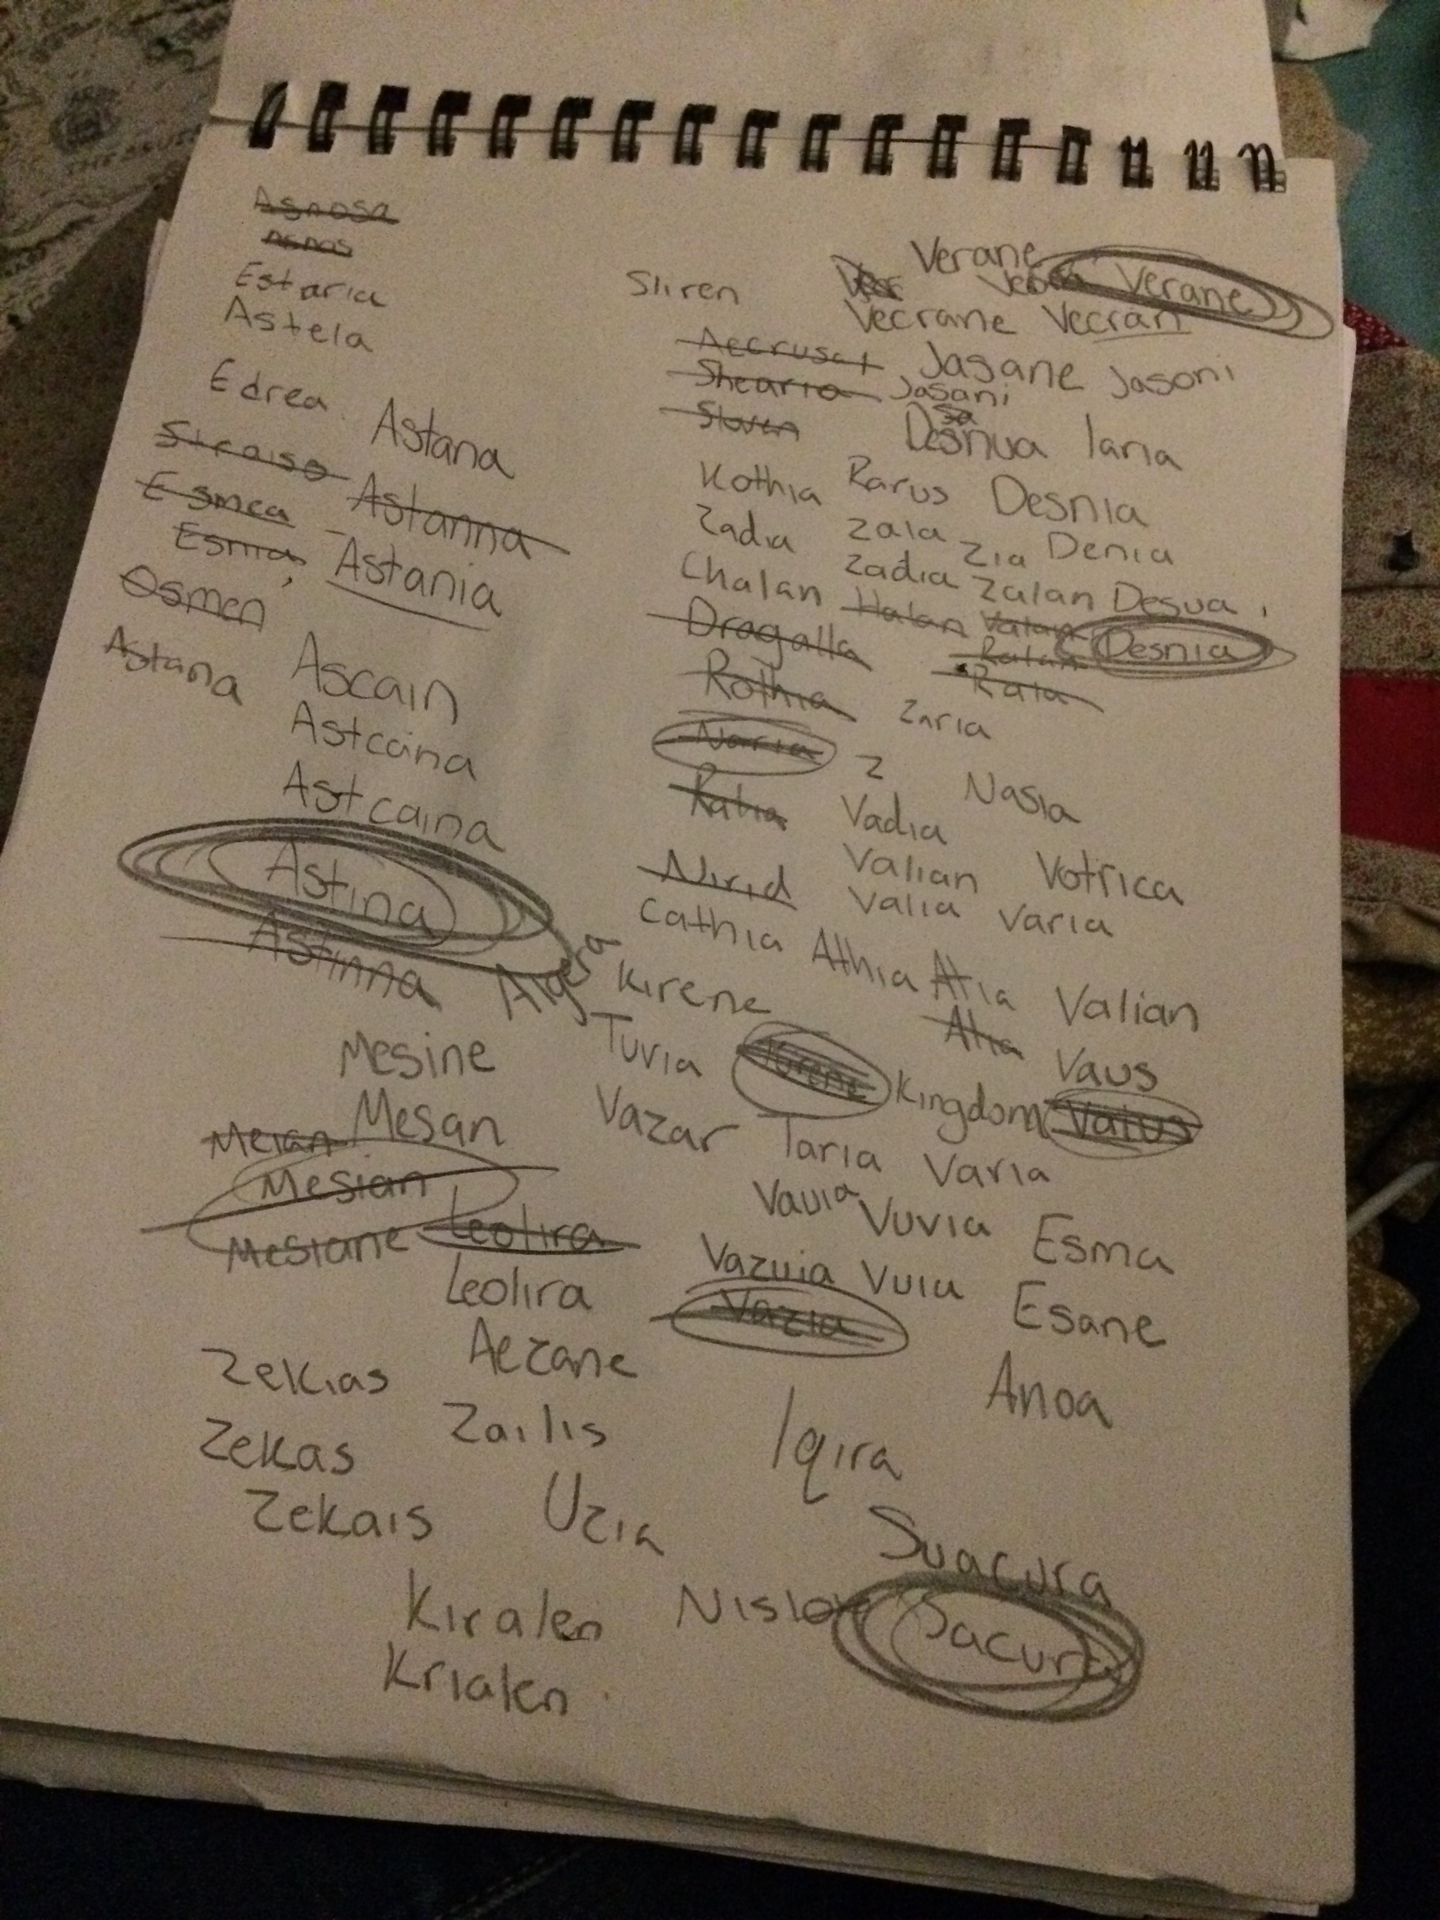 Agnosa
Agnos
Estaria
Astela
Edrea Astana
Astanna
Esmea
Esmia, Astania
Osmen
Astana Ascain
Astcaina
Astcaina
Astina
Astinna
Algera
Mesine
Mesan
Meian
Mesian
Mesiane Leolira
Leolira
Aezane
Zekias
Zailis
Zekas
Zekais
Uzia
Kiralen
Krialen
Verane
Sliren Verane
Vecrane Vecran
Jasane Jasoni
Shearia Jasani
Desnua Iaria
Kothia Rarus Desnia
Zadia Zala Zia Denia
Chalan Zadia Zalan Desua,
Dragalla Halan Valan Desnia
Ralan
Rothia Rala
Zaria
Naria Z Nasia
Ratia Vadia
Valian Votrica
Nirid Valia Varia
Cathia Athia Atia Valian
Kirene Atia Vaus
Tuvia Kingdom Vatus
Vazar Taria Varia
Vauia Vuvia Esma
Vazuia Vuia Esane
Vazia
Anoa
Iqira
Suacura
Sacura